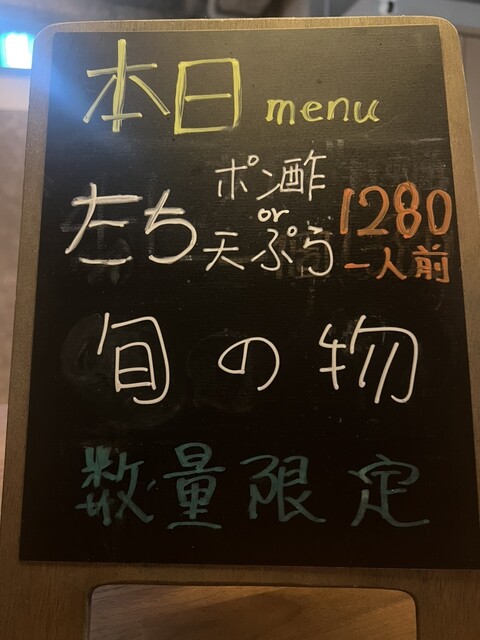 本日 menu
たち ポン酢 or 天ぷら 1280 一人前
旬の物
数量限定